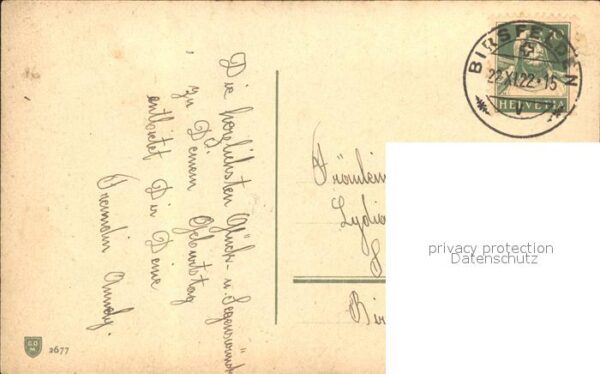 Die herzlichsten Glück- u. Segenswünsche
zu Deinem Geburtstag
entbietet Dir Deine
Freundin Anny.
Fräulein
Lydia
BIRSFELDEN
22.XI.22-15
V
HELVETIA
privacy protection
Datenschutz
2677